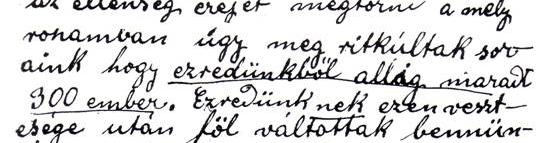 az ellenség erejét megtörni a mely
rohamban úgy meg ritkúltak sor
aink hogy ezredünkből allig maradt
300 ember. Ezredünk nek ezen veszt-
esége után föl váltottak bennün-